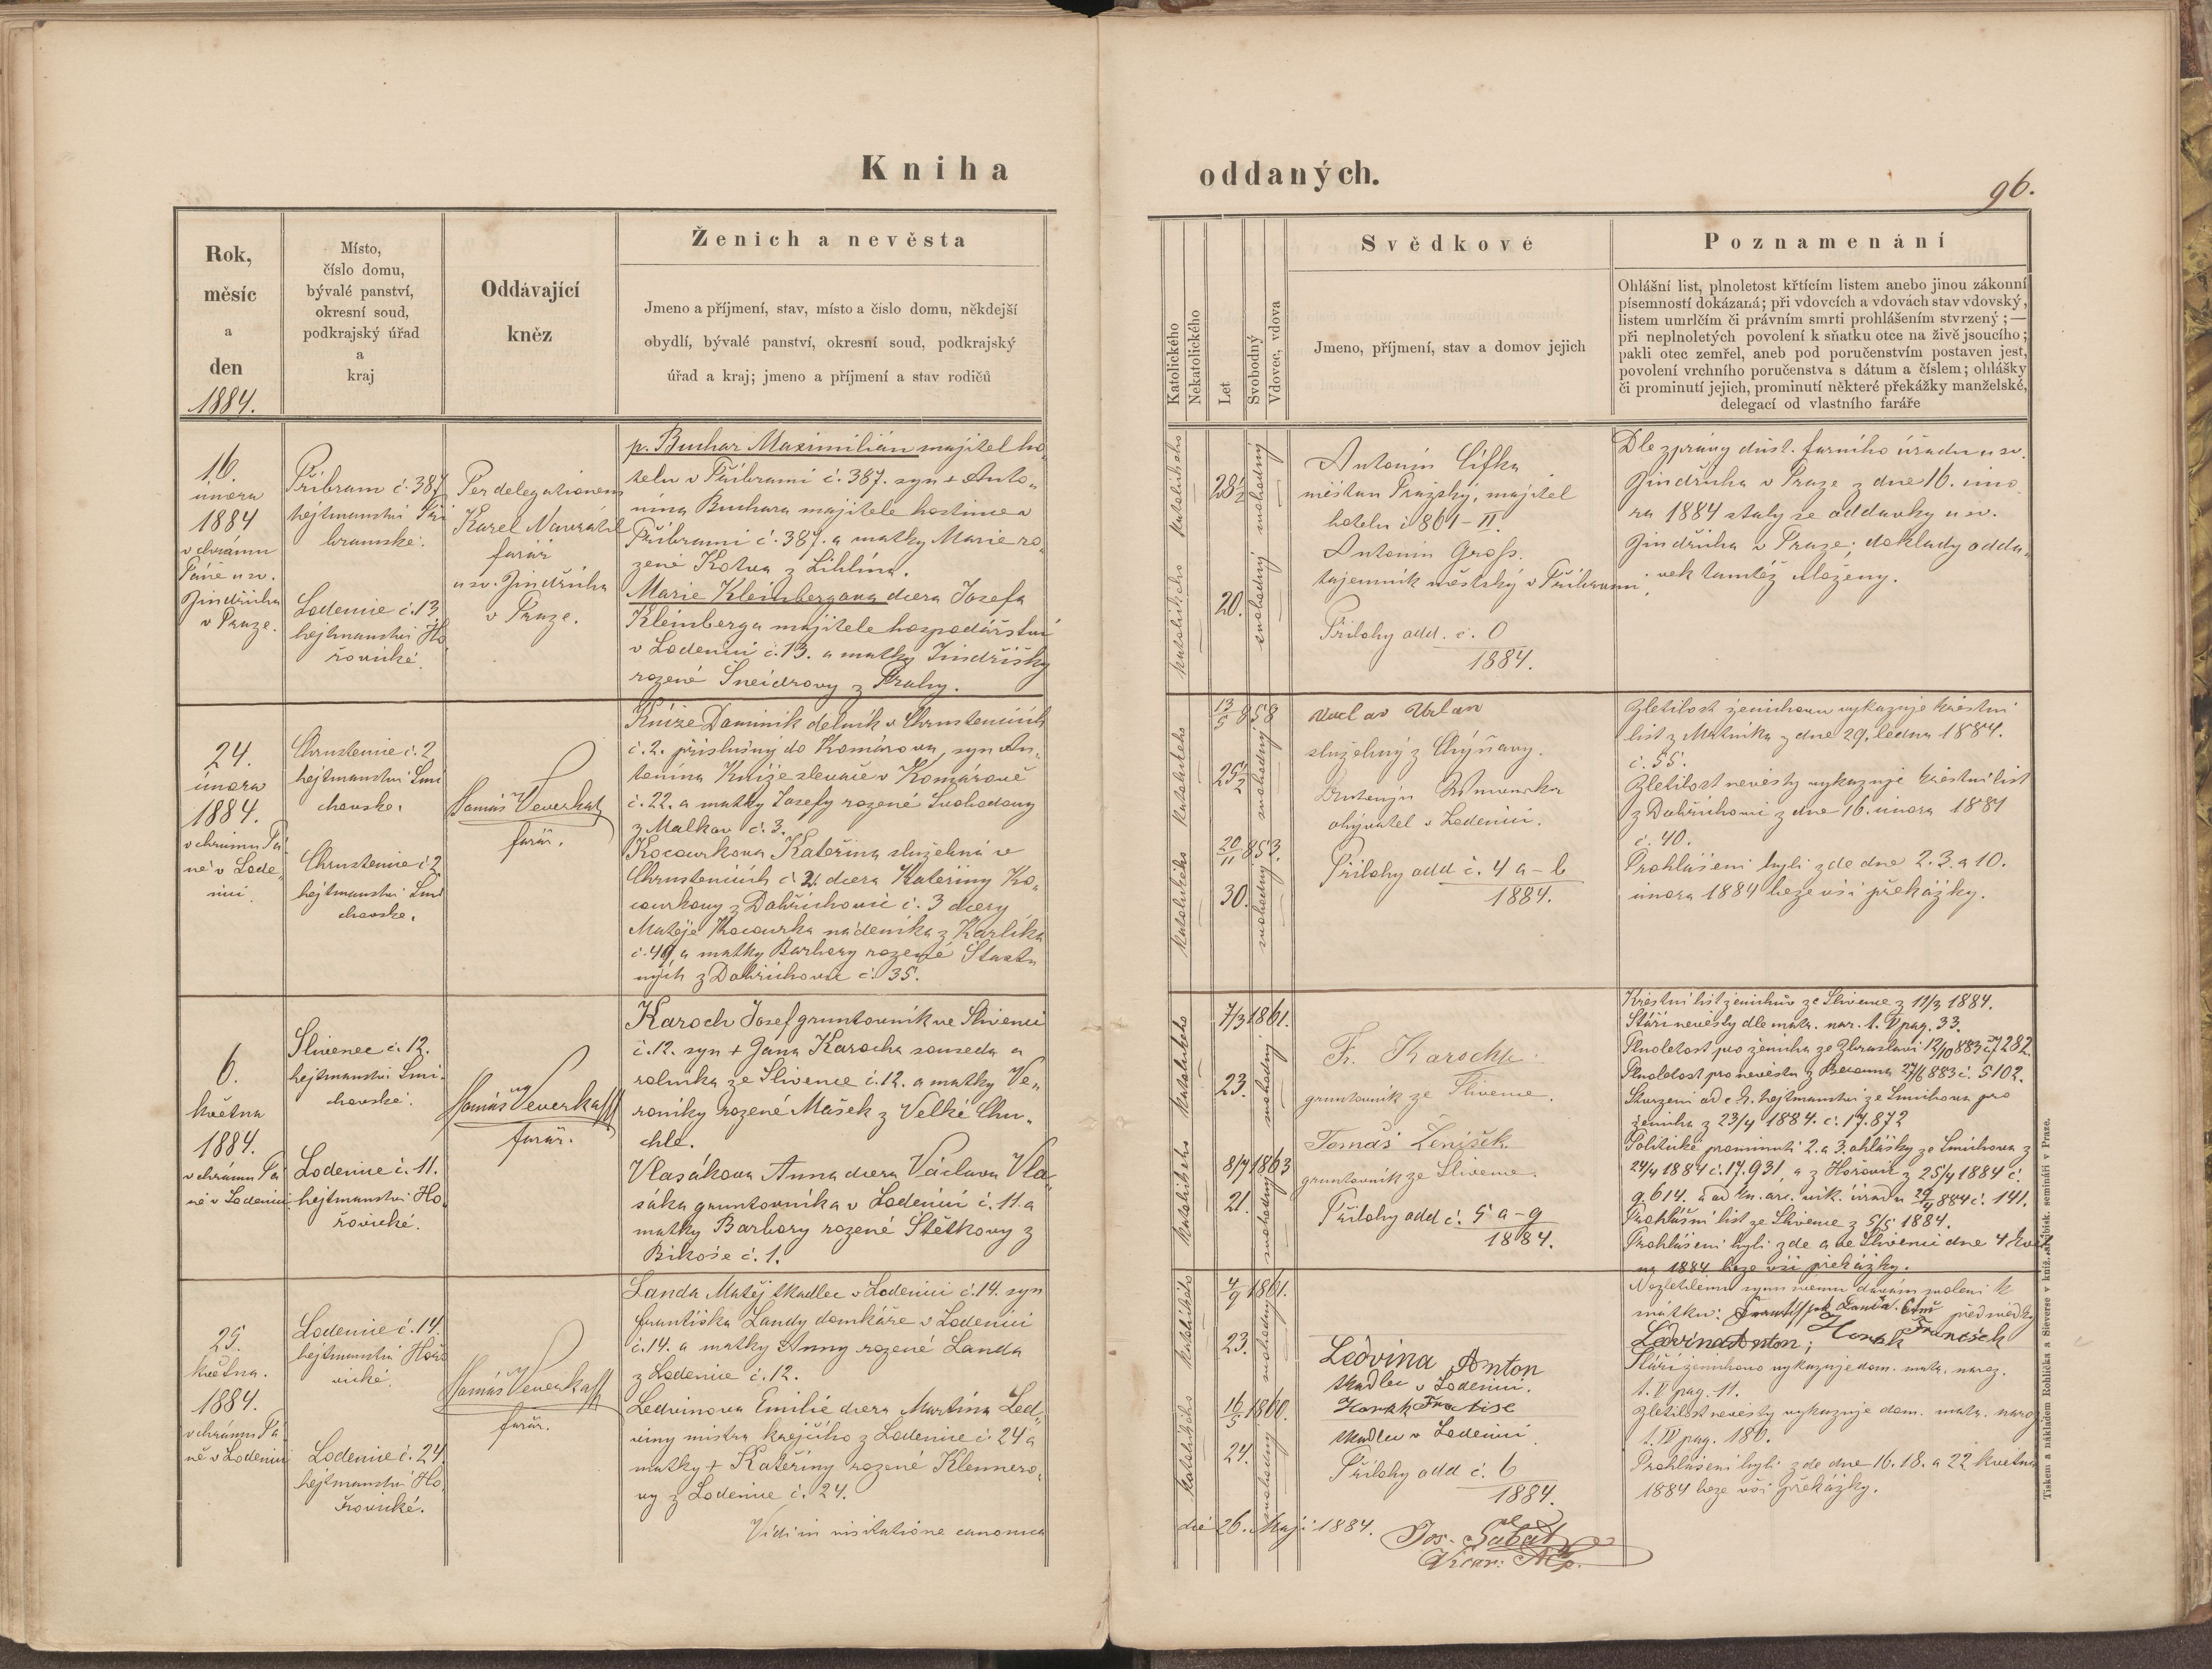 Kniha
oddaných.
96.
Rok,
měsíc
a
den
1884.
Místo,
číslo domu,
bývalé panství,
okresní soud,
podkrajský úřad
a
kraj
Oddávající
kněz
Ženich a nevěsta
Jmeno a příjmení, stav, místo a číslo domu, někdejší
obydlí, bývalé panství, okresní soud, podkrajský
úřad a kraj; jmeno a příjmení a stav rodičů
Katolického
Nekatolického
Let
Svobodný
Vdovec, vdova
Svědkové
Jmeno, příjmení, stav a domov jejich
Poznamenání
Ohlášní list, plnoletost křtícím listem anebo jinou zákonní
písemností dokázaná; při vdovcích a vdovách stav vdovský,
listem umrlčím či právním smrti prohlášením stvrzený; —
při neplnoletých povolení k sňatku otce na živě jsoucího;
pakli otec zemřel, aneb pod poručenstvím postaven jest,
povolení vrchního poručenstva s dátum a číslem; ohlášky
či prominutí jejich, prominutí některé překážky manželské,
delegací od vlastního faráře
16.
února
1884
v chrámu
Páně u sv.
Jindřicha
v Praze.
Příbram č. 387
hejtmanství Pří
bramské.
Lodenice č. 13
hejtmanství Ho
řovické.
Per delegationem
Karel Navrátil
farář
u sv. Jindřicha
v Praze.
p. Buchar Maximilián majitel ho„
telu v Příbrami č. 387. syn + Anto„
nína Buchara majitele hostince v
Příbrami č. 387. a matky Marie ro„
zené Kotva z Liblína.
Marie Kleinbergova dcera Josefa
Kleinberga majitele hospodářství
v Lodenici č. 13. a matky Jindřišky
rozené Šneidrovy z Prahy.
katolického
katolického
28½
20.
svobodný
svobodný
Antonín Cifka
měšťan Pražský, majitel
hotelu č 861 – II.
Antonín Gross.
tajemník městský v Příbrami.
Přílohy odd. č. 0
1884.
Dle zprávy důst. farního úřadu u sv.
Jindřicha v Praze z dne 16. úno
ra 1884 staly se oddavky u sv.
Jindřicha v Praze; doklady odda„
vek tamtéž uloženy.
24.
února
1884.
v chrámu Pá
ně v Lode„
nici.
Chrustenice č. 2
hejtmanství Smi
chovské.
Chrustenice č 2
hejtmanství Smi
chovské.
Tomáš Veverka
farář.
Kníže Dominik dělník v Chrustenicích
č. 2. příslušný do Komárova, syn An„
tonína Kníže slevače v Komárově
č. 22. a matky Josefy rozené Svobodovy
z Malkov č. 3.
Kocourkova Kateřina služebná v
Chrustenicích č 2. dcera Kateřiny Ko„
courkovy z Dobřichovic č. 3 dcery
Matěje Kocourka nádeníka z Karlíka
č. 49, a matky Barbory rozené Šťast
ných z Dobřichovic č. 35.
katolického
katolického
13/5 858
25½
20/11 853.
30.
svobodný
svobodný
Vaclav Urban
služebný z Chýňavy.
obývatel v Lodenici.
Přílohy odd č. 4 a – b
1884.
Zletilost ženichovu vykazuje křestní
list z Mrtníka z dne 29. ledna 1884.
č. 55.
Zletilost nevěsty vykazuje křestní list
z Dobřichovic z dne 16. února 1884
č. 40.
Prohlášeni byli zde dne 2. 3. a 10.
února 1884 beze vší překážky.
6.
května
1884.
v chrámu Pá
ně v Lodenici
Slivenec č. 12.
hejtmanství Smi„
chovské.
Lodenice č. 11.
hejtmanství Ho„
řovické.
Tomáš Veverka
farář.
Karoch Josef gruntovník ve Slivenci
č. 12. syn + Jana Karocha souseda a
rolníka ze Slivence č. 12. a matky Ve„
roniky rozené Mašek z Velké Chu„
chle.
Vlasákova Anna dcera Václava Vla„
sáka gruntovníka v Lodenici č. 11. a
matky Barbory rozené Štětkovy z
Bikoše č. 1.
katolického
katolického
7/3 1861.
23.
8/7 1863
21.
svobodný
svobodný
Fr. Karoch
gruntovník ze Slivence.
Tomáš Zeníšek
gruntovník ze Slivence.
Přílohy odd č. 5 a – g
1884.
Křestní list ženichův ze Slivence z 11/3 1884.
Stáří nevěsty dle matr. nar. t. V pag. 33.
Plnoletost pro ženicha ze Zbraslavi 12/10 883 č. 7282.
Plnoletost pro nevěstu z Berouna 27/6 883 č. 5102.
Stvrzení od c. k. hejtmanství ze Smíchova pro
ženicha z 23/4 1884. č. 17.872
Politické prominutí 2. a 3. ohlášky ze Smíchova z
24/4 1884 č. 17.931, a z Hořovic z 25/4 1884 č.
9.614. a od kn. arc. vik. úřadu 29/4 884 č. 141.
Prohlášní list ze Slivence z 5/5 1884.
Prohlášeni byli zde a ve Slivenci dne 4 květ
na 1884 beze vší překážky.
25.
května.
1884.
v chrámu Pá
ně v Lodenici
Lodenice č. 14.
hejtmanství Hořo
vické.
Lodenice č. 24
hejtmanství Ho„
řovické.
Tomáš Veverka
farář.
Landa Matěj tkadlec v Lodenici č. 14. syn
Františka Landy domkáře v Lodenici
č. 14. a matky Anny rozené Landa
z Lodenice č. 12.
Ledvinova Emilie dcera Martina Led„
viny mistra krejčího z Lodenice č. 24 a
matky + Kateřiny rozené Klennero„
vy z Lodenice č. 24.
Vidi in visitatione canonica
katolického
katolického
4/9 1861.
23.
16/5 1860.
24.
svobodný
svobodný
Ledvina Anton
tkadlec v Lodenici.
Horak
tkadlec v Lodenici
Přílohy odd č. 6
1884.
die 26. Maji 1884.
Jos. Sabat
Vicar:
Nezletilému synu svému dávám svolení k
sňatku: Landa. před svědky
Ledvina Anton; Horak Frantisek
Stáří ženichovo vykazuje dom. matr. naroz.
t. V pag. 11.
Zletilost nevěsty vykazuje dom. matr. naroz
t. IV pag. 180.
Prohlášeni byli zde dne 16. 18. a 22 května
1884 beze vší překážky.
Tiskem a nákladem Rohlíčka a Sieverse v kníž. arcibisk. semináři v Praze.